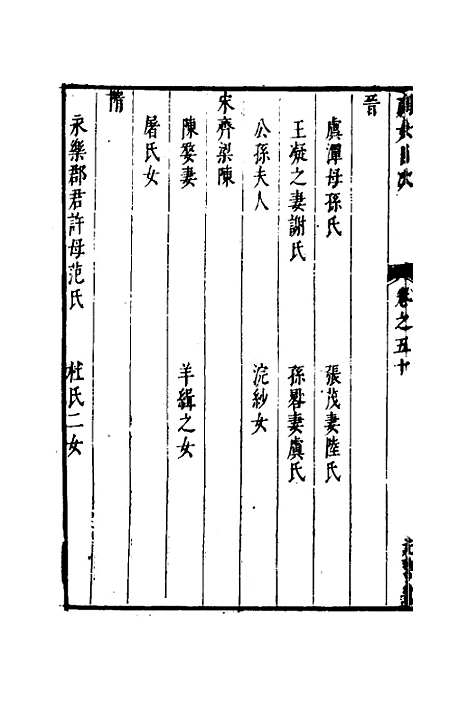 列女目次 卷之五十
晉
虞潭母孫氏 張茂妻陸氏
王凝之妻謝氏 孫晷妻虞氏
公孫夫人 浣紗女
宋齊梁陳
陳婺妻 羊緝之女
屠氏女
隋
永樂郡君許母范氏 杜氏二女